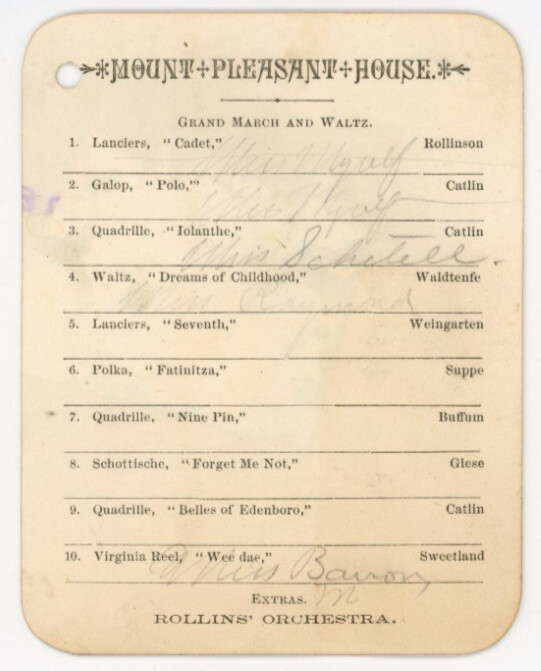 MOUNT PLEASANT HOUSE.
GRAND MARCH AND WALTZ.
1. Lanciers, "Cadet," Rollinson
Miss
2. Galop, "Polo,'" Catlin
Miss
3. Quadrille, "Iolanthe," Catlin
Miss
4. Waltz, "Dreams of Childhood," Waldtenfe
Miss Raymond
5. Lanciers, "Seventh," Weingarten
6. Polka, "Fatinitza," Suppe
7. Quadrille, "Nine Pin," Buffum
8. Schottische, "Forget Me Not," Giese
9. Quadrille, "Belles of Edenboro," Catlin
10. Virginia Reel, "Wee dae," Sweetland
Miss Barron
EXTRAS.
ROLLINS' ORCHESTRA.